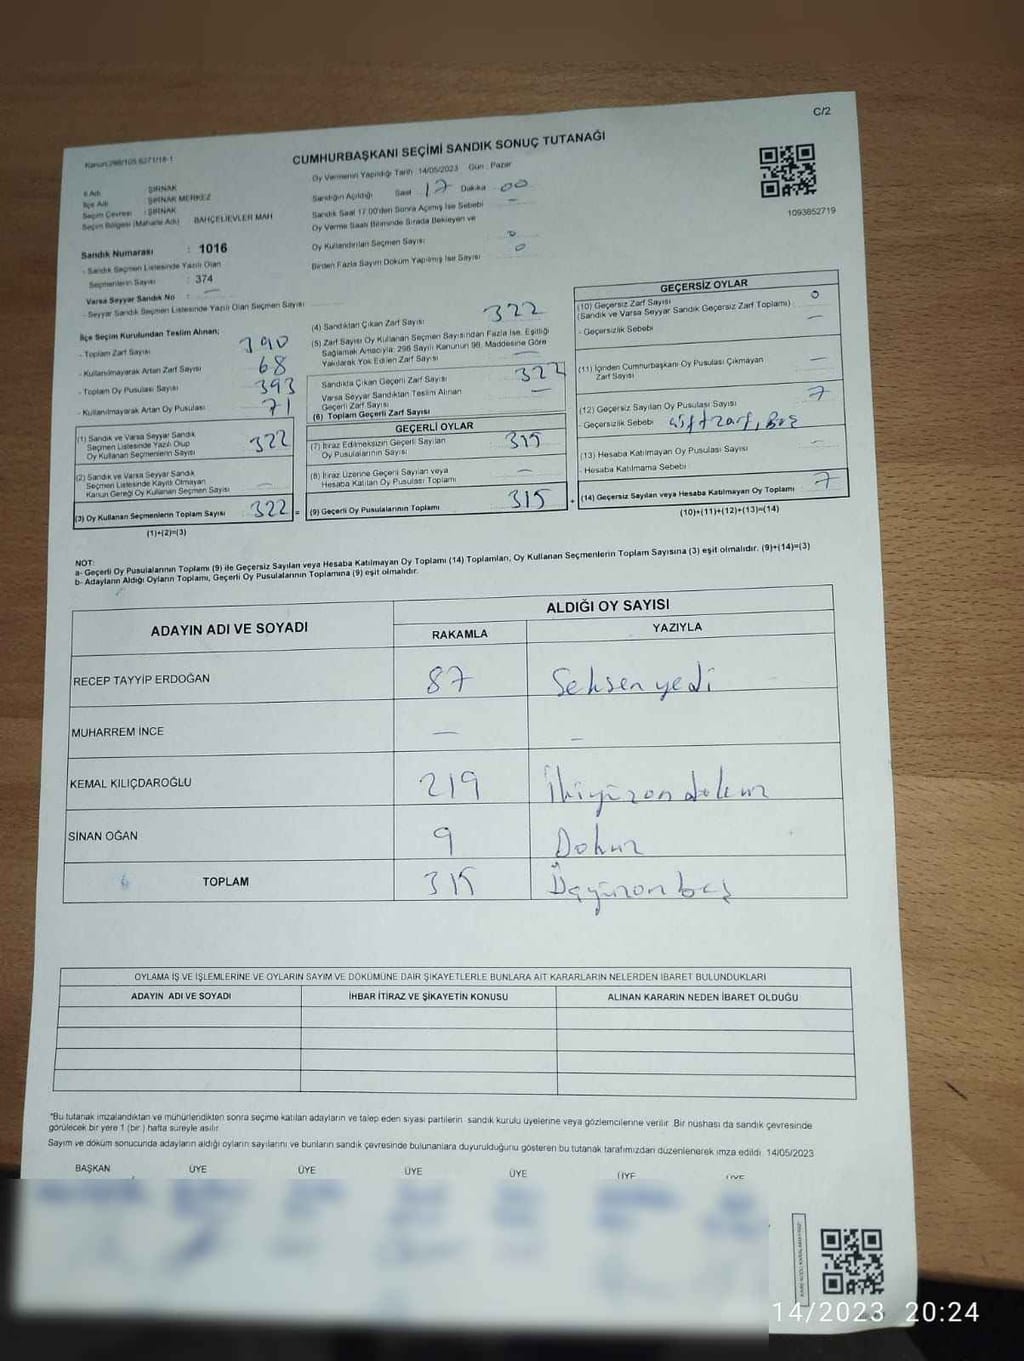 C/2
Kanun:298/105,6271/18-1
CUMHURBAŞKANI SEÇİMİ SANDIK SONUÇ TUTANAĞI
1093852719
İl Adı : ŞIRNAK
İlçe Adı : ŞIRNAK MERKEZ
Seçim Çevresi : ŞIRNAK
Seçim Bölgesi (Mahalle Adı) : BAHÇELİEVLER MAH
Sandık Numarası : 1016
- Sandık Seçmen Listesinde Yazılı Olan
Seçmenlerin Sayısı : 374
Varsa Seyyar Sandık No : —
- Seyyar Sandık Seçmen Listesinde Yazılı Olan Seçmen Sayısı :
Oy Vermenin Yapıldığı Tarih :14/05/2023 Gün : Pazar
Sandığın Açıldığı Saat 17 Dakika 00
Sandık Saat 17.00'den Sonra Açılmış İse Sebebi —
Oy Verme Saati Bitiminde Sırada Bekleyen ve
Oy Kullandırılan Seçmen Sayısı
Birden Fazla Sayım Döküm Yapılmış İse Sayısı 0
İlçe Seçim Kurulundan Teslim Alınan;
- Toplam Zarf Sayısı 390
- Kullanılmayarak Artan Zarf Sayısı 68
- Toplam Oy Pusulası Sayısı 393
- Kullanılmayarak Artan Oy Pusulası 71
(1) Sandık ve Varsa Seyyar Sandık
Seçmen Listesinde Yazılı Olup
Oy Kullanan Seçmenlerin Sayısı 322
(2) Sandık ve Varsa Seyyar Sandık
Seçmen Listesinde Kayıtlı Olmayan
Kanun Gereği Oy Kullanan Seçmen Sayısı —
(3) Oy Kullanan Seçmenlerin Toplam Sayısı 322 =
(1)+(2)=(3)
(4) Sandıktan Çıkan Zarf Sayısı 322
(5) Zarf Sayısı Oy Kullanan Seçmen Sayısından Fazla İse, Eşitliği
Sağlamak Amacıyla; 298 Sayılı Kanunun 98. Maddesine Göre
Yakılarak Yok Edilen Zarf Sayısı —
Sandıkta Çıkan Geçerli Zarf Sayısı 322
Varsa Seyyar Sandıktan Teslim Alınan
Geçerli Zarf Sayısı —
(6) Toplam Geçerli Zarf Sayısı
GEÇERLİ OYLAR
(7) İtiraz Edilmeksizin Geçerli Sayılan
Oy Pusulalarının Sayısı 315
(8) İtiraz Üzerine Geçerli Sayılan veya
Hesaba Katılan Oy Pusulası Toplamı —
(9) Geçerli Oy Pusulalarının Toplamı 315 +
GEÇERSİZ OYLAR
(10) Geçersiz Zarf Sayısı 0
(Sandık ve Varsa Seyyar Sandık Geçersiz Zarf Toplamı)
- Geçersizlik Sebebi —
(11) İçinden Cumhurbaşkanı Oy Pusulası Çıkmayan
Zarf Sayısı —
(12) Geçersiz Sayılan Oy Pusulası Sayısı 7
- Geçersizlik Sebebi çift zarf, Boş
(13) Hesaba Katılmayan Oy Pusulası Sayısı —
- Hesaba Katılmama Sebebi
(14) Geçersiz Sayılan veya Hesaba Katılmayan Oy Toplamı 7
(10)+(11)+(12)+(13)=(14)
NOT:
a- Geçerli Oy Pusulalarının Toplamı (9) ile Geçersiz Sayılan veya Hesaba Katılmayan Oy Toplamı (14) Toplamları, Oy Kullanan Seçmenlerin Toplam Sayısına (3) eşit olmalıdır. (9)+(14)=(3)
b- Adayların Aldığı Oyların Toplamı, Geçerli Oy Pusulalarının Toplamına (9) eşit olmalıdır.
ADAYIN ADI VE SOYADI
ALDIĞI OY SAYISI
RAKAMLA YAZIYLA
RECEP TAYYİP ERDOĞAN 87 Seksen yedi
MUHARREM İNCE — —
KEMAL KILIÇDAROĞLU 219 İkiyüzon dokuz
SİNAN OĞAN 9 Dokuz
TOPLAM 315 Üçyüzon beş
OYLAMA İŞ VE İŞLEMLERİNE VE OYLARIN SAYIM VE DÖKÜMÜNE DAİR ŞİKAYETLERLE BUNLARA AİT KARARLARIN NELERDEN İBARET BULUNDUKLARI
ADAYIN ADI VE SOYADI İHBAR İTİRAZ VE ŞİKAYETİN KONUSU ALINAN KARARIN NEDEN İBARET OLDUĞU
*Bu tutanak imzalandıktan ve mühürlendikten sonra seçime katılan adayların ve talep eden siyasi partilerin sandık kurulu üyelerine veya gözlemcilerine verilir. Bir nüshası da sandık çevresinde
görülecek bir yere 1 (bir ) hafta süreyle asılır.
Sayım ve döküm sonucunda adayların aldığı oyların sayılarını ve bunların sandık çevresinde bulunanlara duyurulduğunu gösteren bu tutanak tarafımızdan düzenlenerek imza edildi. 14/05/2023
BAŞKAN ÜYE ÜYE ÜYE ÜYE ÜYE ÜYE
14/2023 20:24